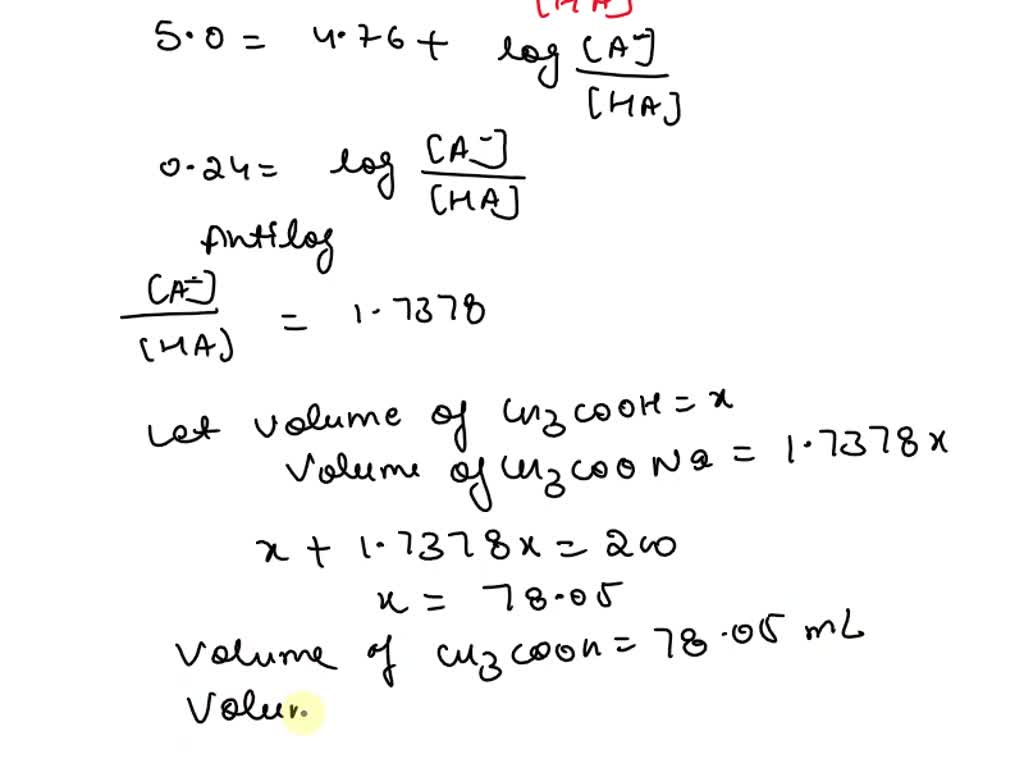 [HA]
5.0 = 4.76 + log [A⁻]/[HA]
0.24 = log [A⁻]/[HA]
Antilog
[A⁻]/[HA] = 1.7378
Let volume of CH3COOH = x
Volume of CH3COONa = 1.7378x
x + 1.7378x = 200
x = 78.05
Volume of CH3COOH = 78.05 mL
Volum